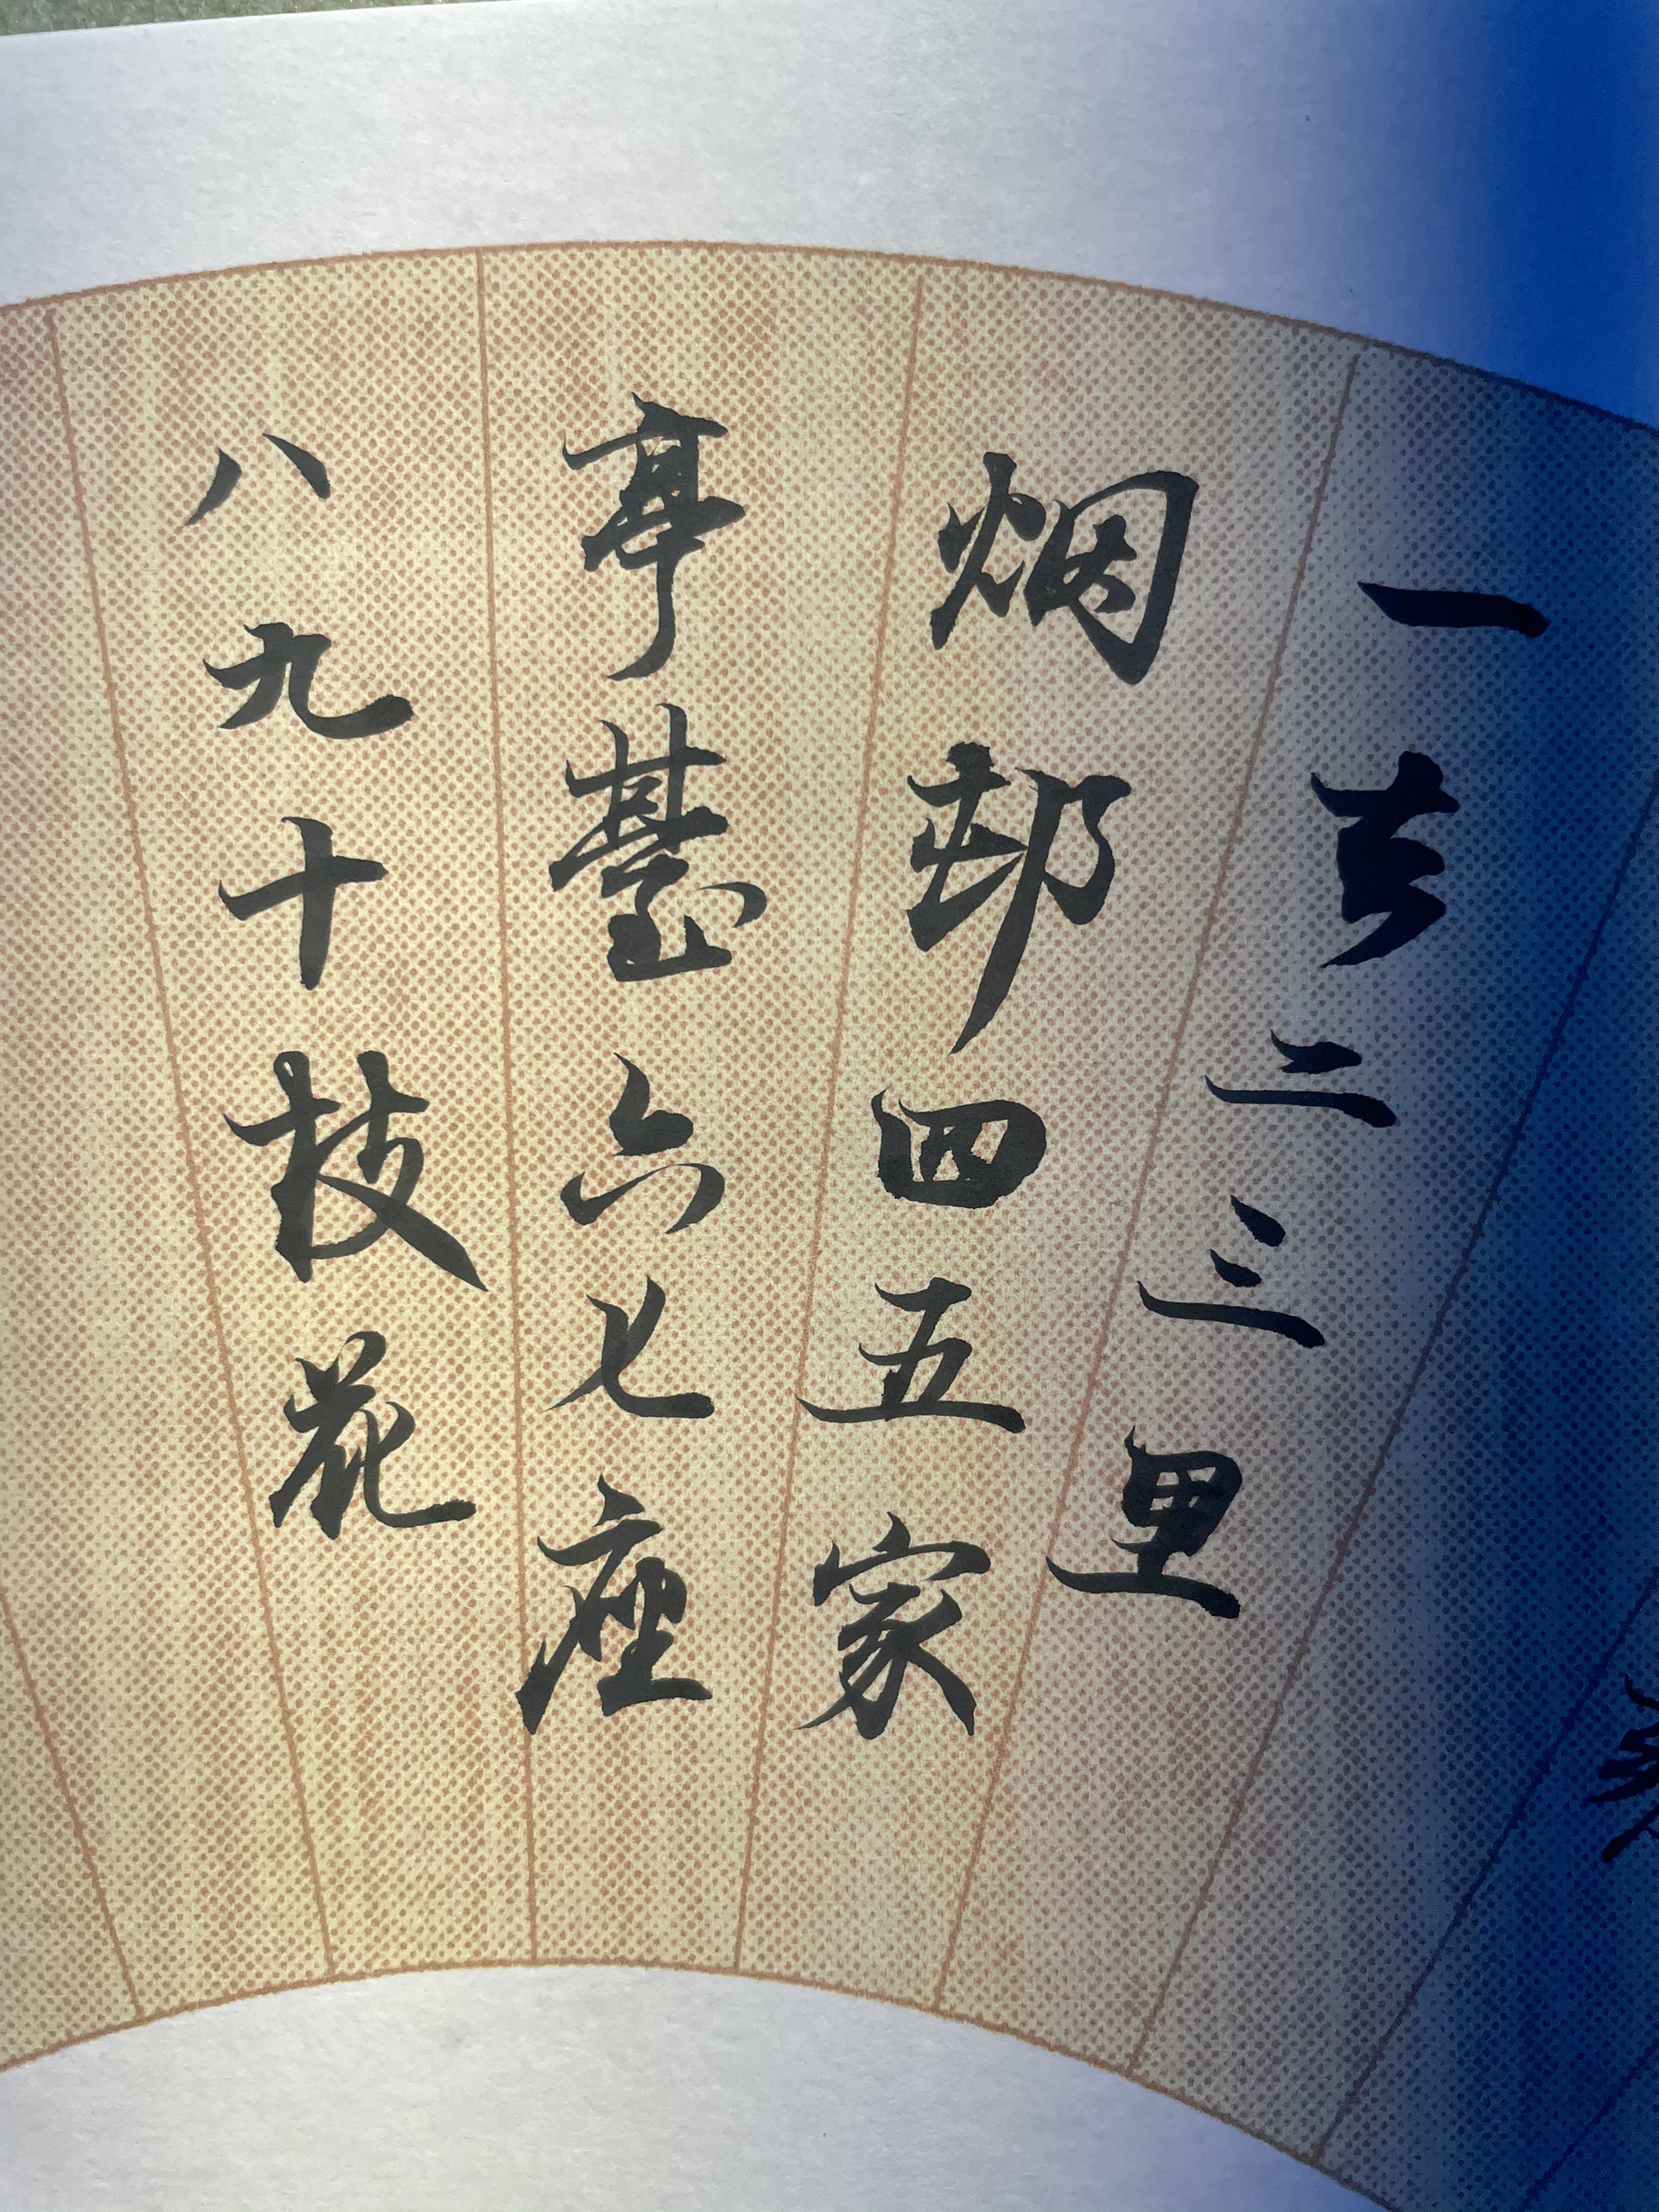 一去二三里
烟邨四五家
亭臺六七座
八九十枝花